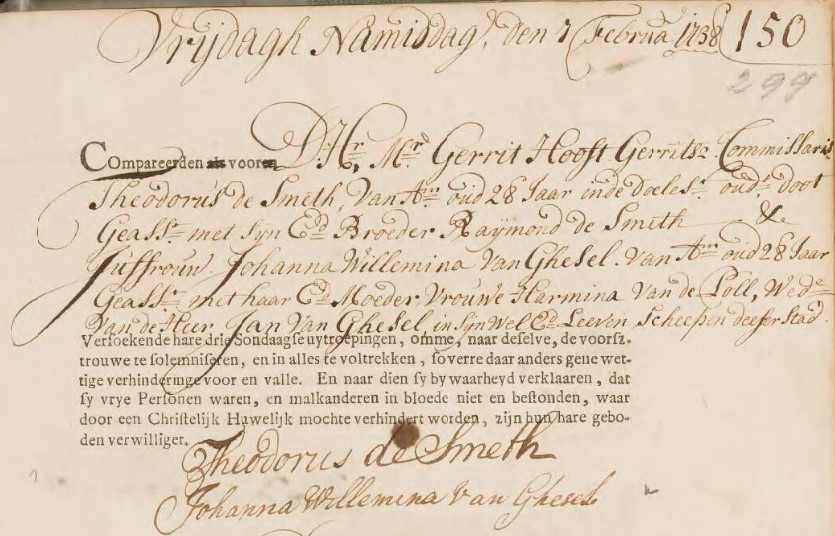 Vrijdagh Namiddag. den 7 Februa 1738 150
299
Compareerden als vooren D: Hr. Mr. Gerrit Hooft Gerritsz Commissaris
Theodorus de Smeth, Van Am oud 28 Jaar inde doelestr ouds doot
Geasst met syn Ed Broeder Raymond de Smeth &
Juffrouw. Johanna Willemina Van Ghesel. van Am oud 28 Jaar
Geasst met haar Ed Moeder Vrouwe Harmina Van de Poll, Wede
Van de Heer Jan Van Ghesel, in syn Wel Ed Leeven Scheepen deeser Stad.
Versoekende hare drie Sondaagse uytroepingen, omme, naar deselve, de voorsz.
trouwe te solemniseren, en in alles te voltrekken, soverre daar anders gene wet-
tige verhinderinge voor en valle. En naar dien sy by waarheyd verklaaren, dat
sy vrye Personen waren, en malkanderen in bloede niet en bestonden, waar
door een Christelijk Huwelijk mochte verhindert worden, zijn hun hare gebo-
den verwilliget.
Theodorus de Smeth
Johanna Willemina van Ghesel